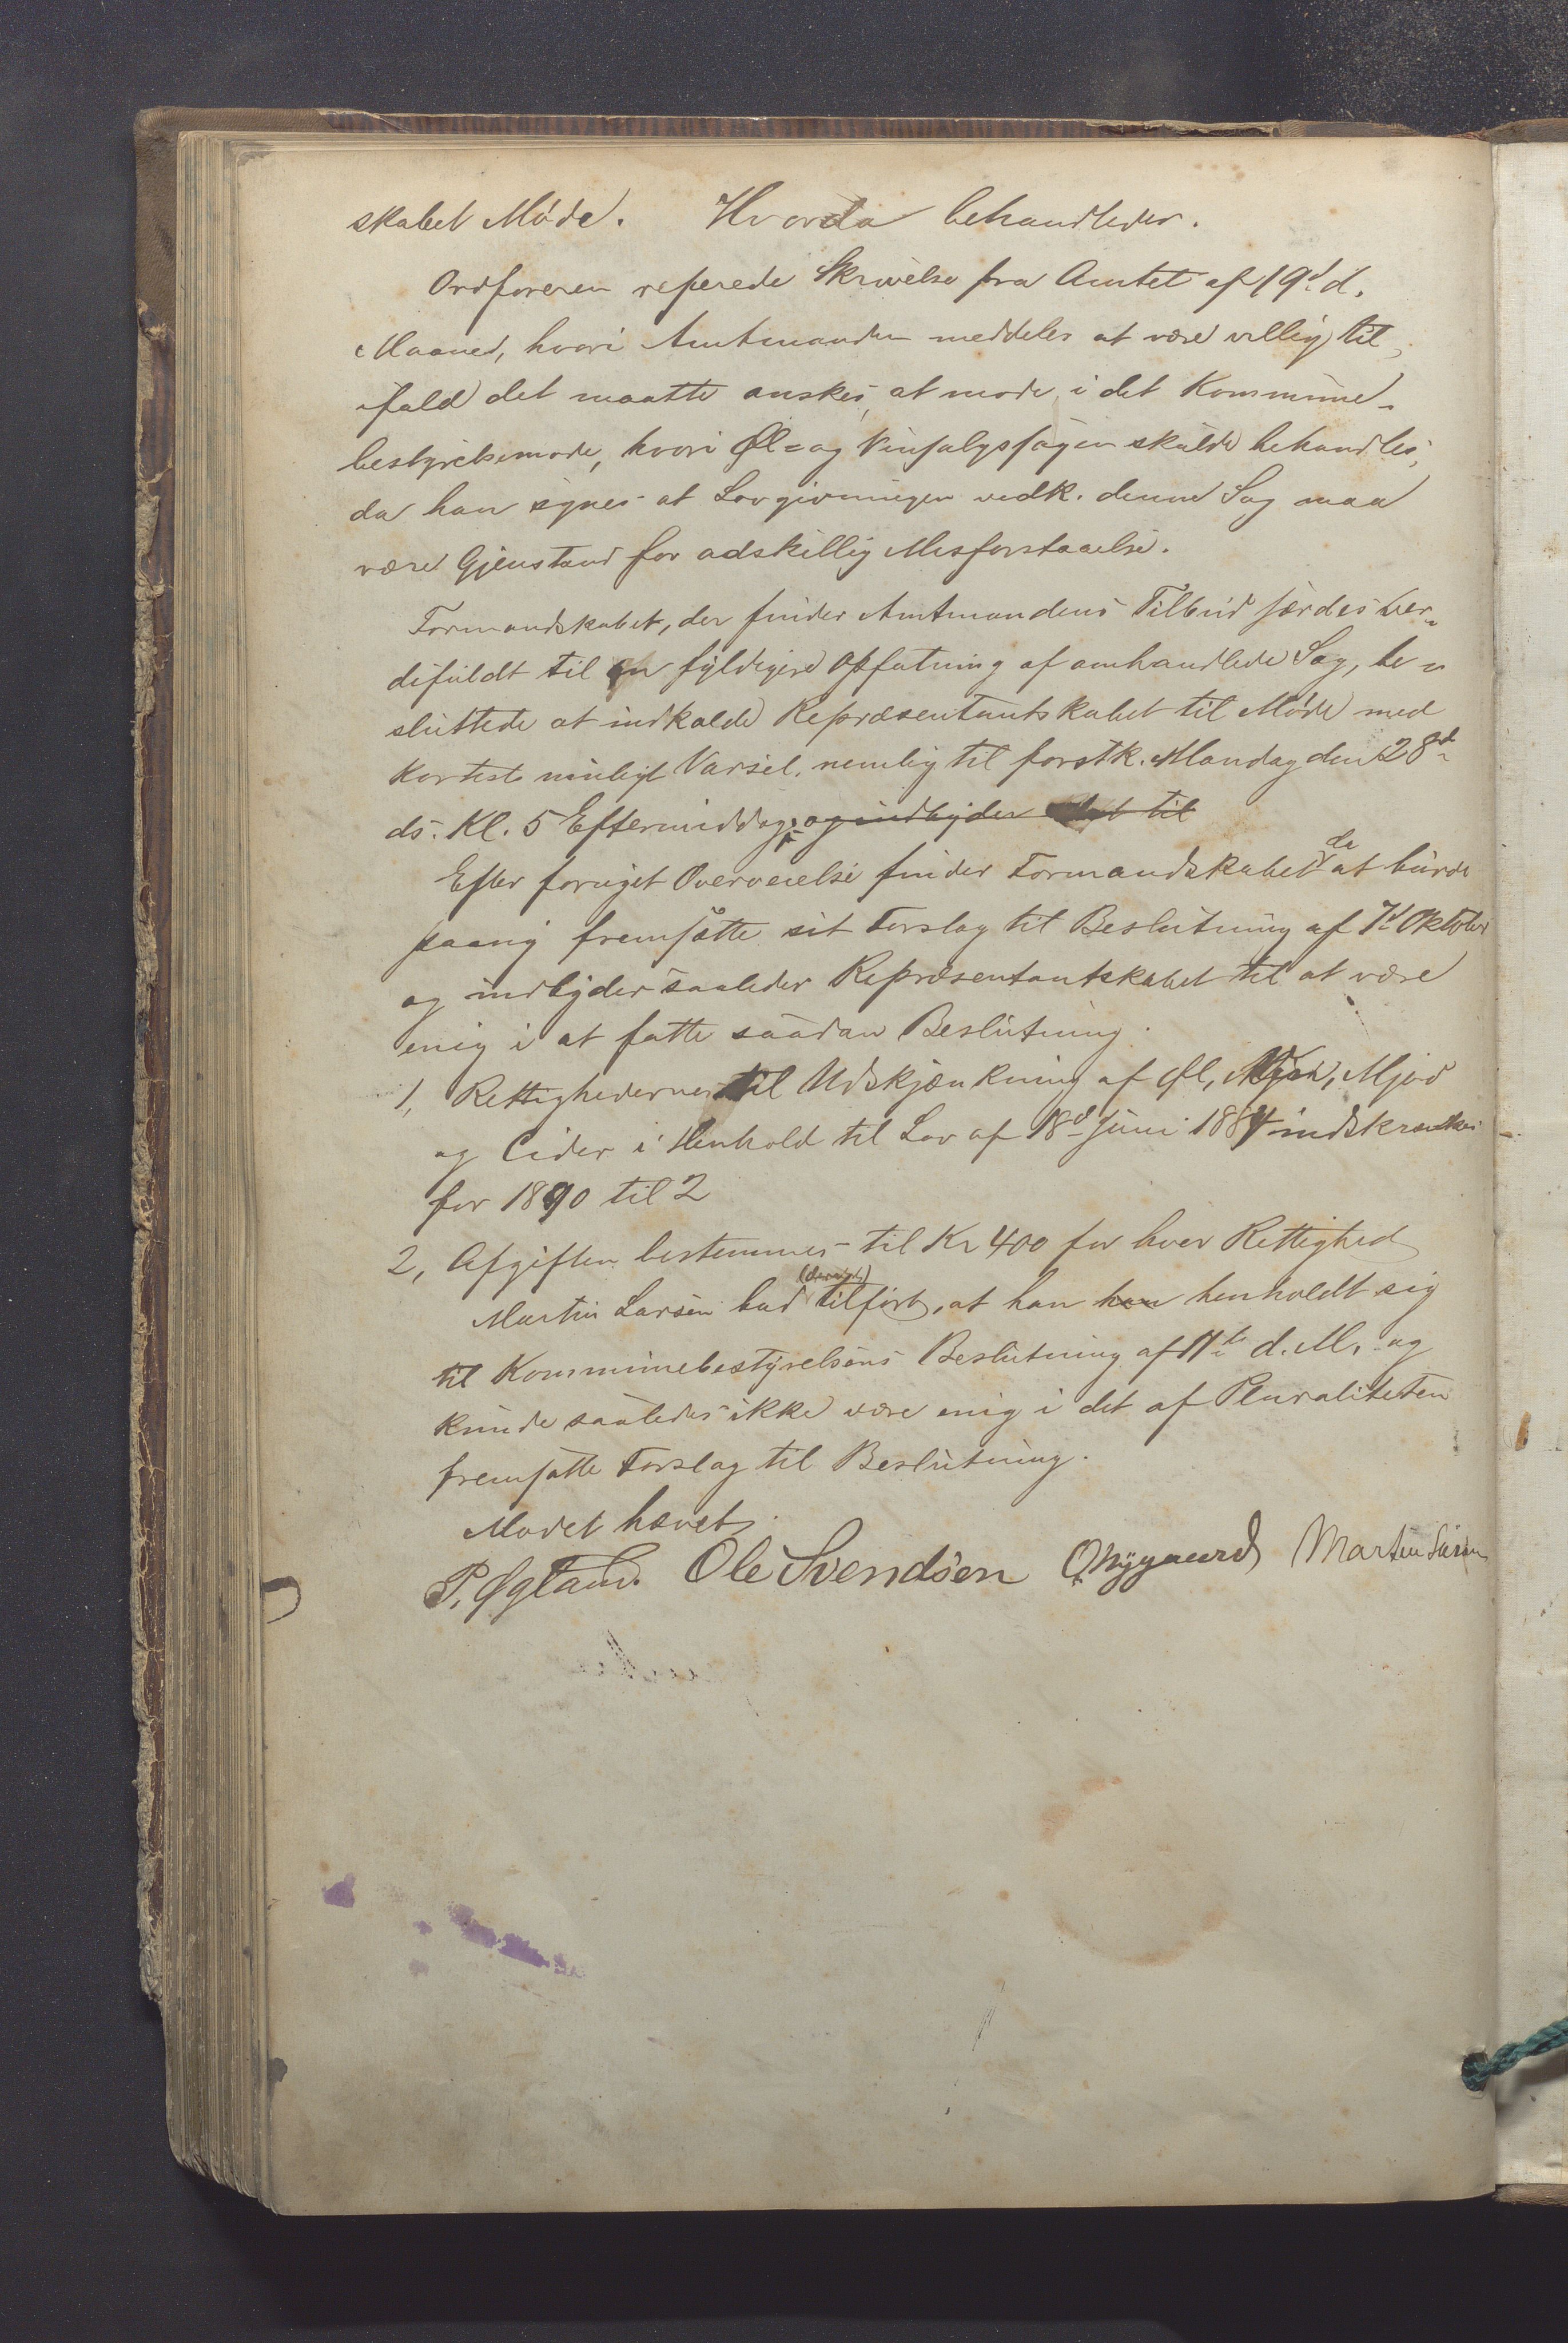 skabet Møde. Hvorda behandledes.
Ordføreren referede Skrivelse fra Amtet af 19d d.
Maaned, hvori Amtmanden meddeles at være villig til,
ifald det maatte ønskes, at møde i det Kommune-
bestyrelsemøde, hvori Øl= og Vinsalgssagen skulde behandles,
da han synes at Lovgivningen vedk. denne Sag maa
være Gjenstand for adskillig Misforstaaelse.
Formandskabet, der finder Amtmandens Tilbud særdeles ver-
difuldt til en fyldigere Opfatning af omhandlede Sag, be-
sluttede at indkalde Repræsentantskabet til Møde med
kortest muligt Varsel, nemlig til førstk. Mandag den 28d
ds. Kl. 5 Eftermiddag, og indbyder det til
Efter foruget Overveielse finder Formandskabet da at burde
paany fremsætte sit Forslag til Beslutning af 7d Oktober
og indbyder saaledes Repræsentantskabet til at være
enig i at fatte saadan Beslutning.
1, Rettighederne til Udskjænkning af Øl, Vin, Mjød
og Cider i Henhold til Lov af 18d Juni 1884 indskrænkes
for 1890 til 2
2, Afgiften bestemmes til Kr 400 for hver Rettighed
Martin Larsen bad tilført, at han han henholdt sig
til Kommunebestyrelsens Beslutning af 11te d. M. og
kunde saaledes ikke være enig i det af Pluraliteten
fremsatte Forslag til Beslutning.
Mødet hævet.
P. Øgland. Ole Svendsen O. Nygaard Martin Larsen